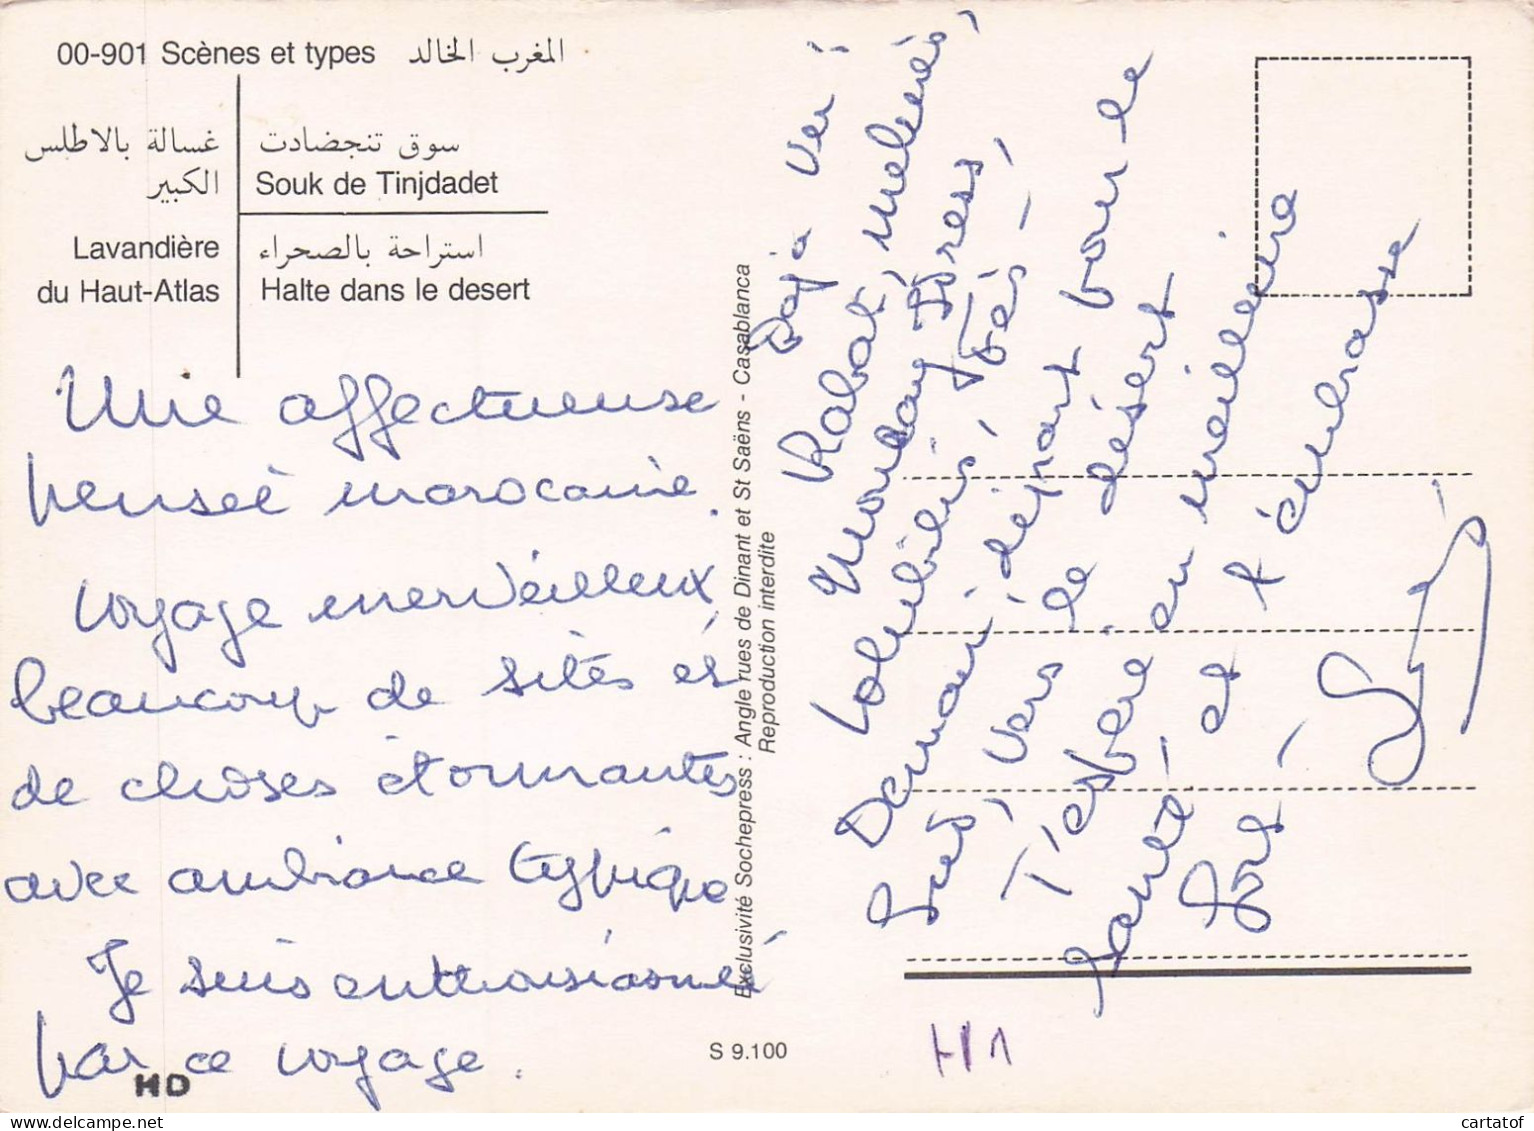 00-901 Scènes et types المغرب الخالد
غسالة بالاطلس
الكبير
Lavandière
du Haut-Atlas
سوق تنجضادت
Souk de Tinjdadet
استراحة بالصحراء
Halte dans le desert
Une affectueuse
pensée marocaine.
Voyage merveilleux
beaucoup de sites et
de choses étonnantes
avec ambiance typique
Je suis enthousiasmé
par ce voyage.
HD
Exclusivité Sochepress : Angle rues de Dinant et St Saëns - Casablanca
Reproduction interdite
S 9.100
Déjà vu :
Rabat, Meknès,
Moulay Idress,
Volubilis, Fès -
Demain départ pour le
Sud, vers le désert
T'espère en meilleure
santé, et t'embrasse
HI1
cartatof